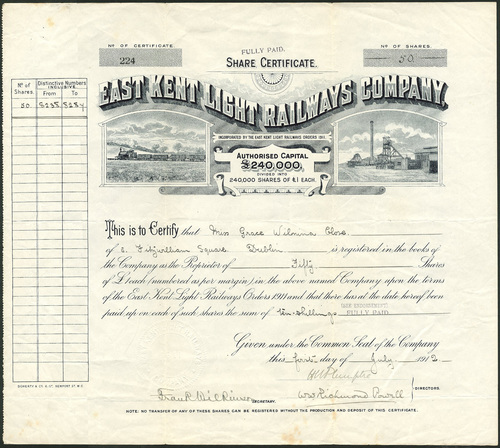 Nº OF CERTIFICATE.
224
FULLY PAID.
SHARE CERTIFICATE.
Nº OF SHARES.
50
EAST KENT LIGHT RAILWAYS COMPANY.
INCORPORATED BY THE EAST KENT LIGHT RAILWAYS ORDERS 1911.
AUTHORISED CAPITAL
£240,000,
DIVIDED INTO
240,000 SHARES OF £1 EACH.
Nº of Shares.
Distinctive Numbers
INCLUSIVE.
From To
50
This is to Certify that Miss Grace Wilmina Close
of 2. Fitzwilliam Square. Dublin is registered in the books of
the Company as the Proprietor of Fifty Shares
of £1 each (numbered as per margin) in the above named Company upon the terms
of the East Kent Light Railways Orders 1911 and that there has at the date hereof been
paid up on each of such shares the sum of ten shillings
FULLY PAID
Given under the Common Seal of the Company
this first day of July 1912
DIRECTORS.
W W Richmond Powell
SECRETARY.
NOTE: NO TRANSFER OF ANY OF THESE SHARES CAN BE REGISTERED WITHOUT THE PRODUCTION AND DEPOSIT OF THIS CERTIFICATE.